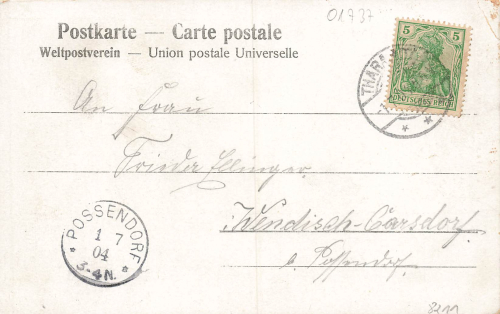 01737
Postkarte — Carte postale
Weltpostverein — Union postale Universelle
5 5
DEUTSCHES REICH
THARA
An Frau
Frieda Ellinger
Wendisch-Carsdorf
b. Possendorf
POSSENDORF
1 7
04
3-4N.
8211